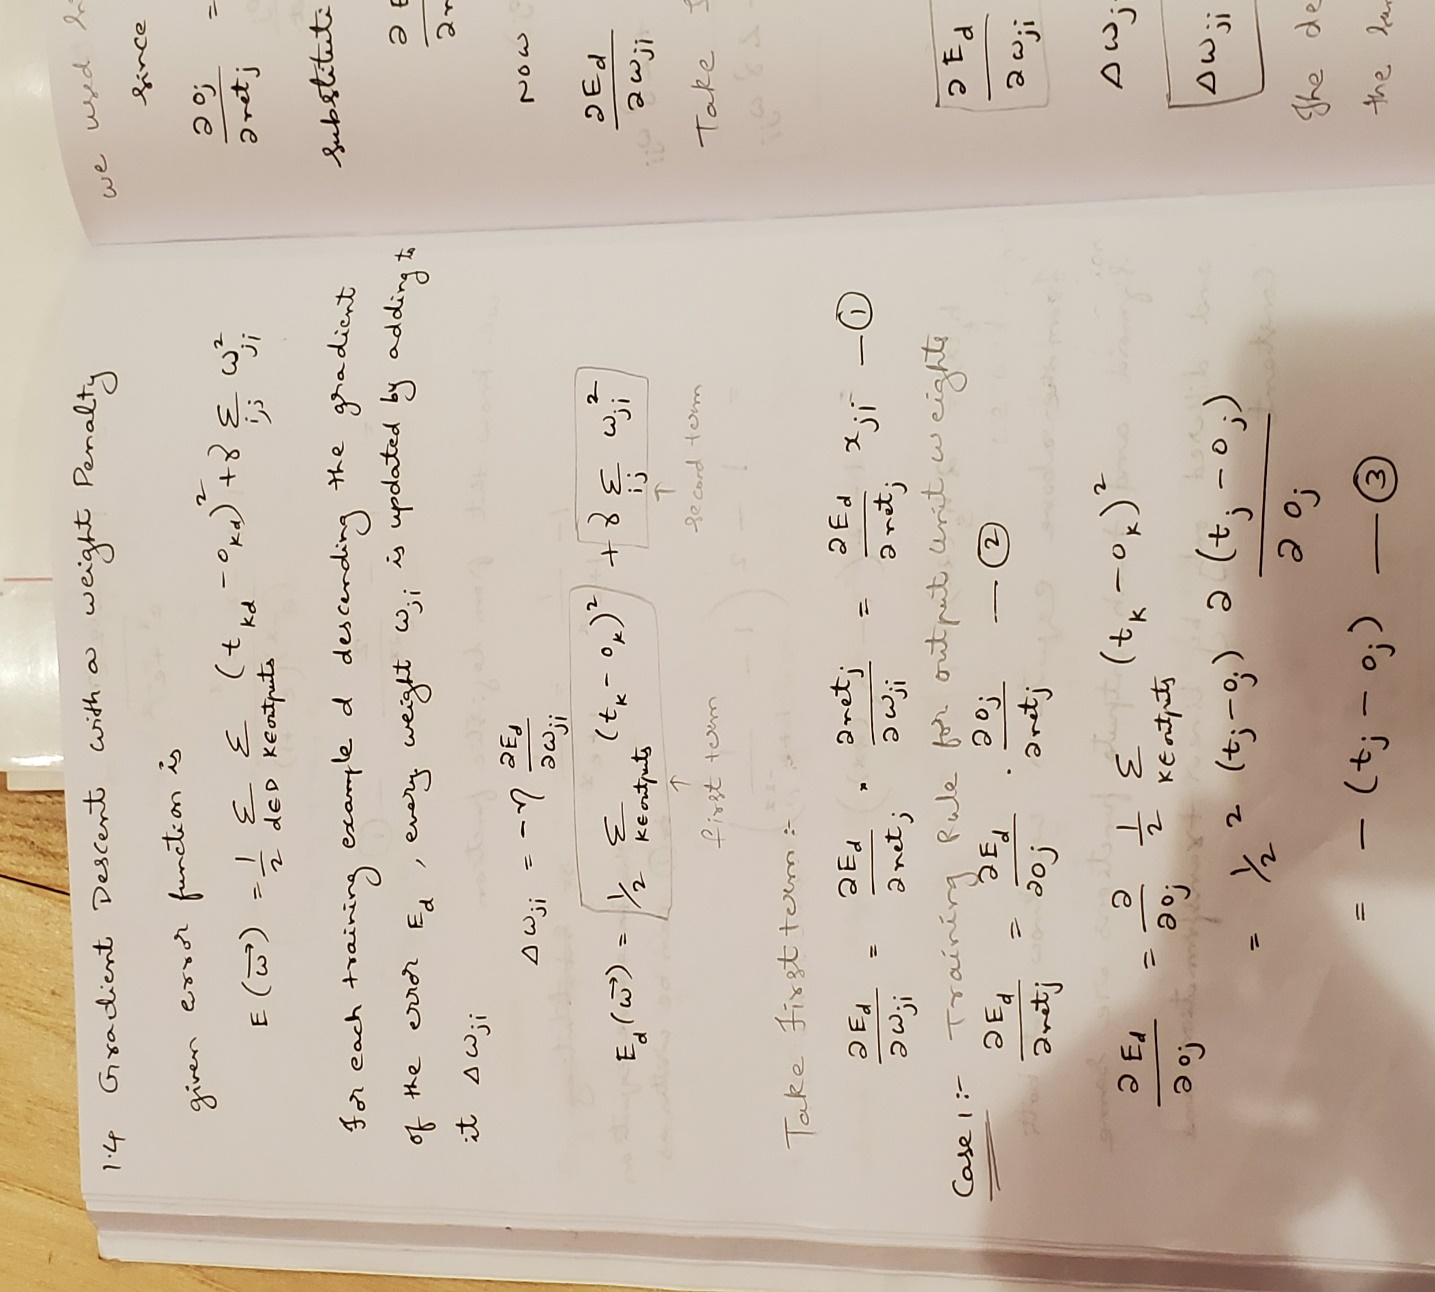 1.4 Gradient Descent with a weight Penalty
given error function is
E(w⃗) = 1/2 Σ d∈D Σ k∈outputs (t kd - o kd)² + γ Σ i,j w²ji
For each training example d descending the gradient
of the error E d, every weight w ji is updated by adding to
it Δw ji
Δw ji = -η ∂E d/∂w ji
E d(w⃗) = 1/2 Σ k∈outputs (t k - o k)² + γ Σ ij w ji²
↑ first term ↑ second term
Take first term :-
∂E d/∂w ji = ∂E d/∂net j . ∂net j/∂w ji = ∂E d/∂net j x ji — ①
Case 1 :- Training Rule for output unit weights
∂E d/∂net j = ∂E d/∂o j . ∂o j/∂net j — ②
∂E d/∂o j = ∂/∂o j 1/2 Σ k∈outputs (t k - o k)²
= 1/2 2 (t j - o j) ∂(t j - o j)/∂o j
= - (t j - o j) — ③
we used
since
∂o j/∂net j =
substituti
∂E
∂n
Now
∂E d/∂w ji
Take
∂E d/∂w ji
Δw j
Δw ji
The de
the